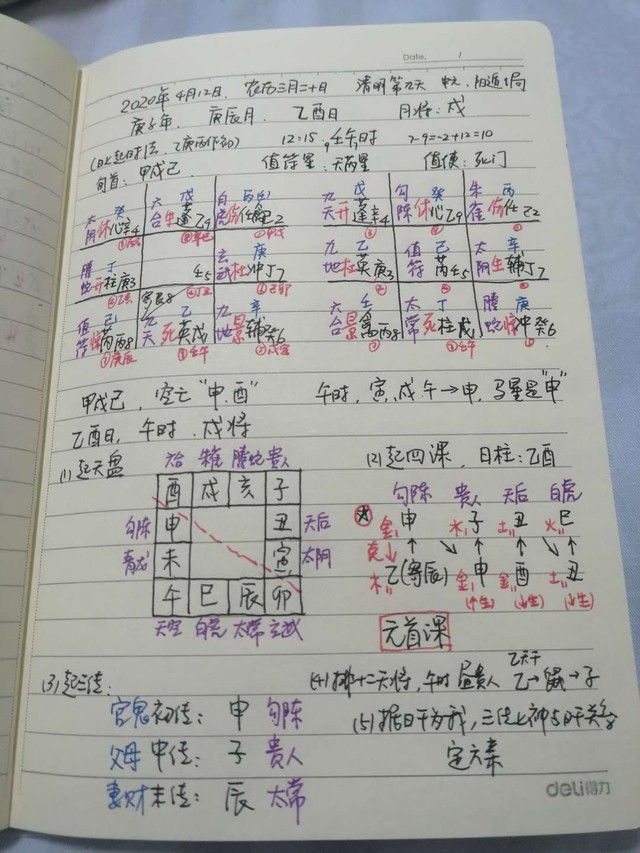 Date. 1
2020年4月12日. 农历三月二十日 清明第九天 中元, 阳遁1局
庚子年, 庚辰月, 乙酉日 月将: 戌
(日上起时法, 乙庚丙作初) 12:15, 壬午时 7-9=-2+12=10
旬首: 甲戌己 值符星: 天芮星 值使: 死门
太 癸 六 戊 白 丙
阴休心辛4 合生蓬乙9 虎伤任 2
螣 丁 玄 庚
蛇开柱庚3 壬5 武杜冲丁7
值 己 九 乙 九 辛
符惊芮丙8 天死英戊 地景辅癸6
九 戊 勾 癸 朱 丙
天开蓬辛4 陈休心乙9 雀伤任己2
九 乙 值 己 太 辛
地杜英庚3 符芮壬5 阴生辅丁7
六 壬 太 丁 螣 庚
合景禽丙8 常死柱戊1 蛇惊冲癸6
甲戌己, 空亡"申.酉" 午时, 寅.戌.午→申, 马星是"申"
乙酉日, 午时. 戌将
(1) 起天盘
六合 朱雀 螣蛇 贵人
酉 戌 亥 子
勾陈 申 丑 天后
青龙 未 寅 太阴
午 巳 辰 卯
天空 白虎 太常 玄武
(2) 起四课. 日柱: 乙酉
勾陈 贵人 天后 白虎
金 申 水 子 土 丑 火 巳
克↓ ↑ ↘ ↑ ↘ ↑ ↘ ↑
木 乙(寄辰) 金 申 金 酉 土 丑
(个生) (个生) (个生)
元首课
(3) 起三传:
官鬼初传: 申 勾陈
父母中传: 子 贵人
妻财末传: 辰 太常
(4) 排十二天将, 午时昼贵人 乙天干
乙→鼠→子
(5) 据日干为我, 三传上神与日干关系
定六亲
deli得力